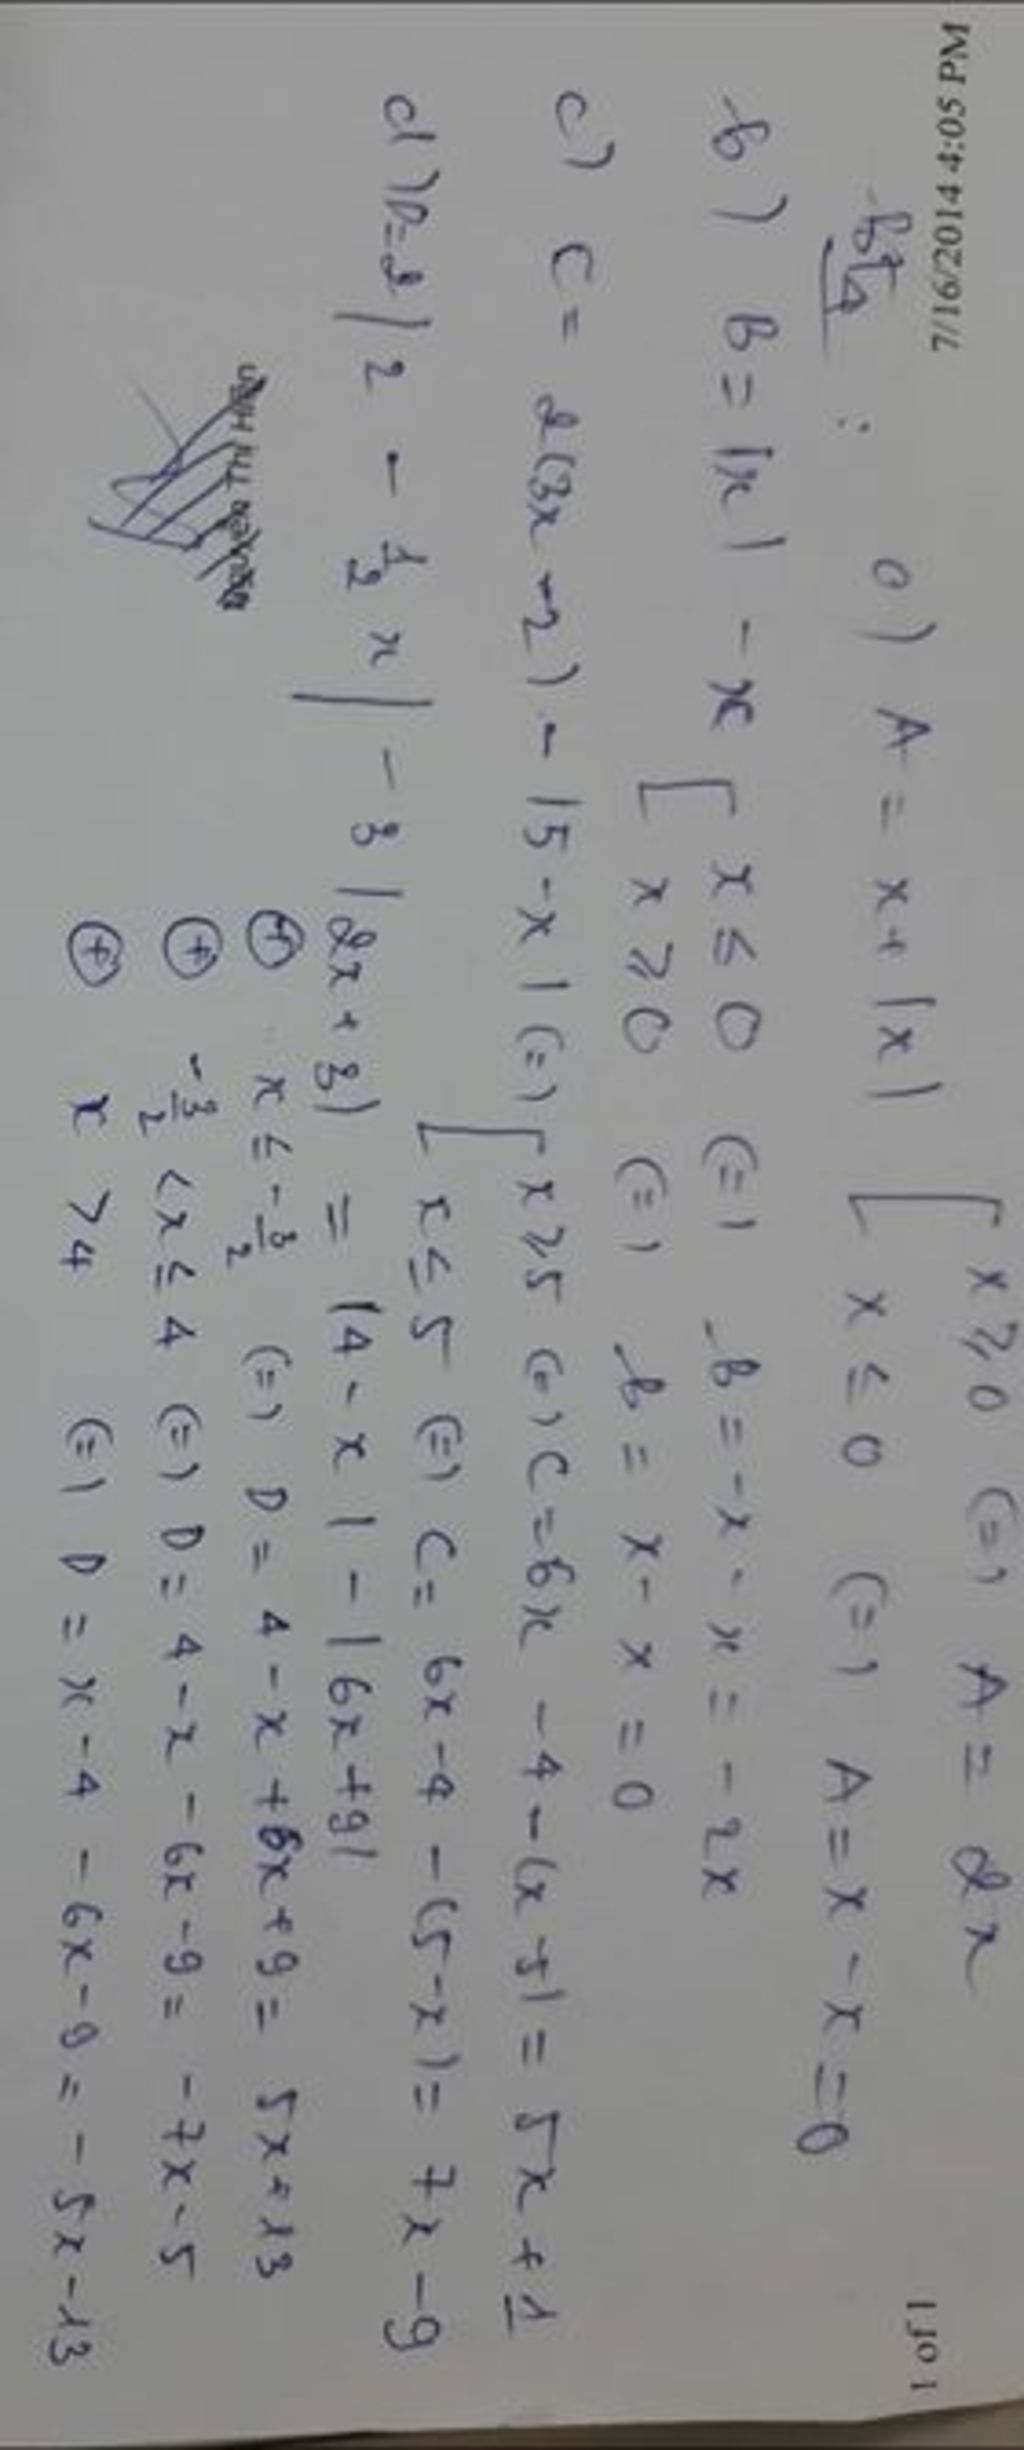 7/16/2014 4:05 PM 1 of 1
x ≥ 0 (=) A = 2x
bt4 : a) A = x + |x| [ x ≤ 0 (=) A = x - x = 0
b) B = |x| - x [ x ≤ 0 (=) b = -x - x = -2x
x ≥ 0 (=) b = x - x = 0
c) C = 2(3x - 2) - |5 - x| (=) [ x ≥ 5 (=) C = 6x - 4 - (x - 5) = 5x + 1
x ≤ 5 (=) C = 6x - 4 - (5 - x) = 7x - 9
d) D = 2 | 2 - 1/2 x | - 3 |2x + 3| = |4 - x| - |6x + 9|
⊕ x ≤ -3/2 (=) D = 4 - x + 6x + 9 = 5x + 13
⊕ -3/2 < x ≤ 4 (=) D = 4 - x - 6x - 9 = -7x - 5
⊕ x > 4 (=) D = x - 4 - 6x - 9 = -5x - 13